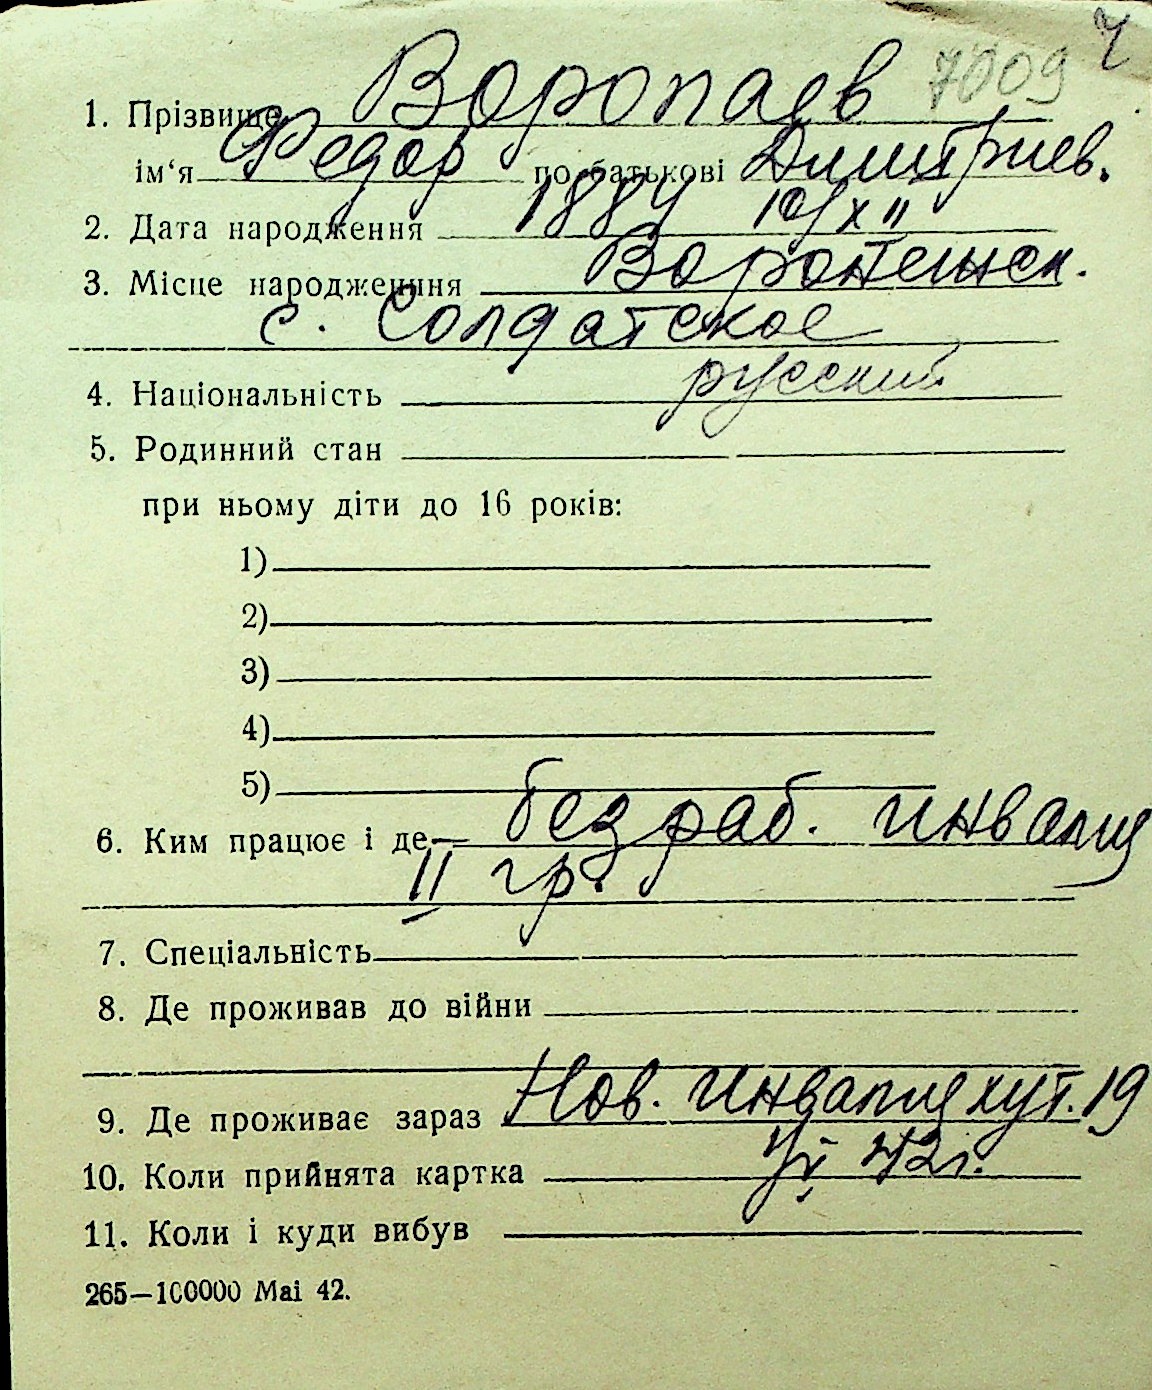 7009 7
1. Прізвище Воропаев
ім‘я Федор по батькові Дмитриев.
2. Дата народження 1884 10/XII
3. Місце народження Воронежск.
с. Солдатское
4. Національність русский
5. Родинний стан
при ньому діти до 16 років:
1)
2)
3)
4)
5)
6. Ким працює і де без раб. инвалид
II гр.
7. Спеціальність
8. Де проживав до війни
9. Де проживає зараз Нов. Инвалид хут. 19
10. Коли прийнята картка 42 г.
11. Коли і куди вибув
265—100000 Mai 42.